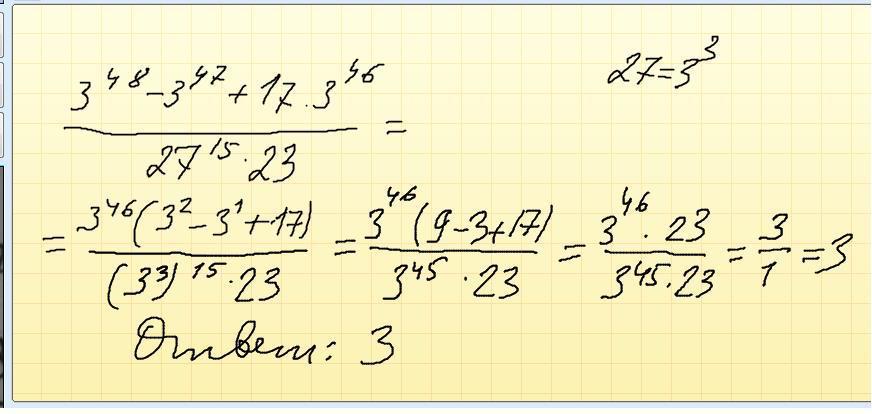 (3^48 − 3^47 + 17 · 3^46) / (27^15 · 23) =
27 = 3^3
= (3^46 (3^2 − 3^1 + 17)) / ((3^3)^15 · 23) = (3^46 (9 − 3 + 17)) / (3^45 · 23) = (3^46 · 23) / (3^45 · 23) = 3/1 = 3
Ответ: 3